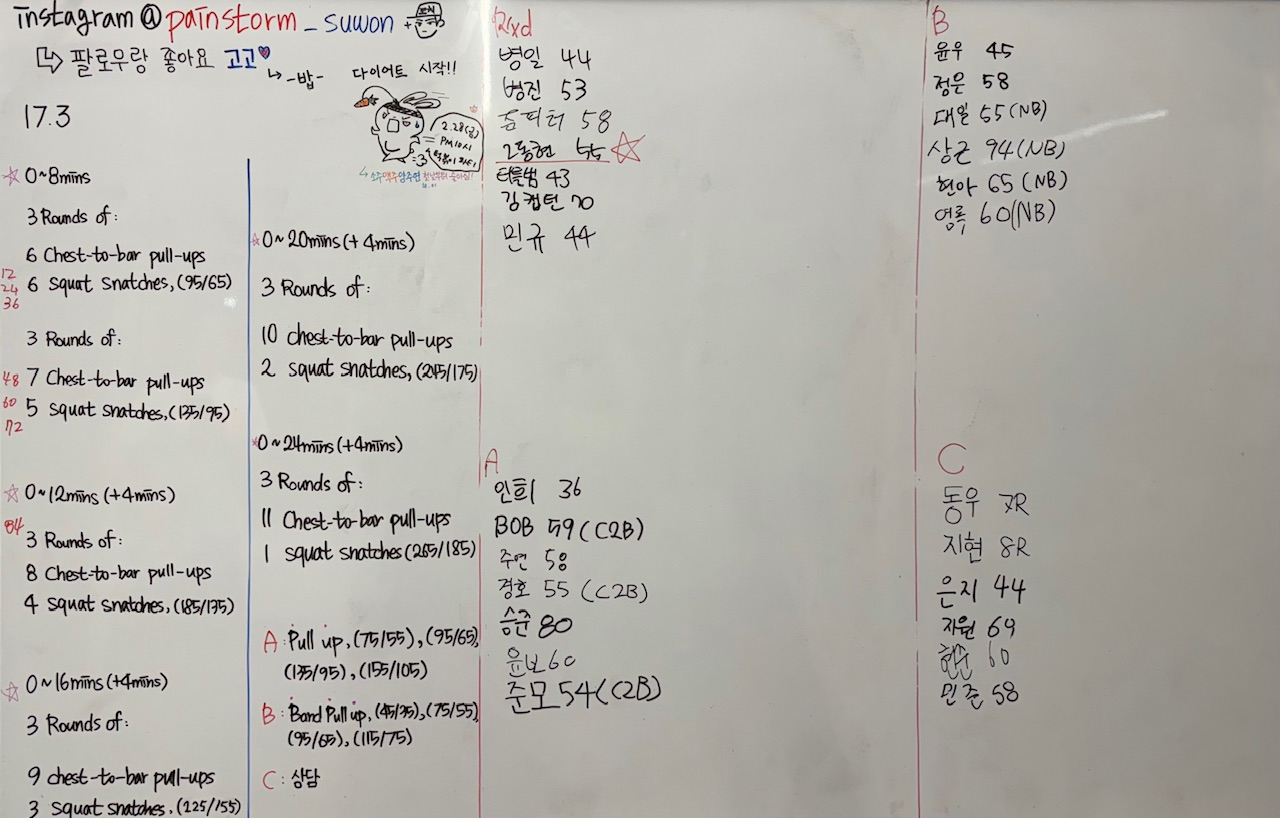 instagram@painstorm_suwon
팔로우랑 좋아요 고고
-밥-
다이어트 시작!!
2.28(금)
PM10시
17.3
0~8mins
3 Rounds of:
6 Chest-to-bar pull-ups
12
24
36
6 squat snatches, (95/65)
3 Rounds of:
48
60
72
7 Chest-to-bar pull-ups
5 squat snatches, (135/95)
0~12mins (+4mins)
84
3 Rounds of:
8 Chest-to-bar pull-ups
4 squat snatches, (185/135)
0~16mins (+4mins)
3 Rounds of:
9 chest-to-bar pull-ups
3 squat snatches, (225/155)
0~20mins (+4mins)
3 Rounds of:
10 chest-to-bar pull-ups
2 squat snatches, (245/175)
0~24mins (+4mins)
3 Rounds of:
11 Chest-to-bar pull-ups
1 squat snatches (265/185)
A: Pull up, (75/55), (95/65),
(135/95), (155/105)
B: Band Pull up, (45/35), (75/55),
(95/65), (115/75)
C: 상담
Rxd
병일 44
병진 53
줌피터 58
고동현
터틀쌤 43
김캡턴 70
민규 44
A
인희 36
BOB 59 (C2B)
주연 58
경호 55 (C2B)
승준 80
윤보 60
준모 54 (C2B)
B
윤우 45
정은 58
대일 55 (NB)
상근 94 (NB)
현아 65 (NB)
영록 60 (NB)
C
동우 7R
지현 8R
은지 44
자원 69
60
민준 58